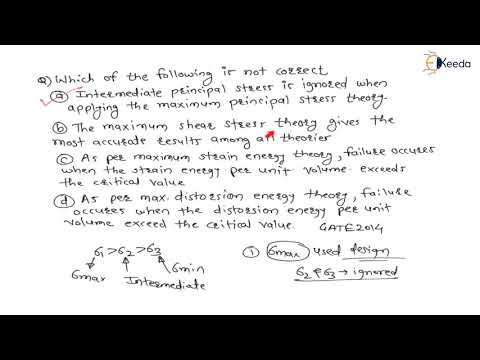 EKeeda
Q) Which of the following is not correct
(a) Intermediate principal stress is ignored when
applying the maximum principal stress theory.
(b) The maximum shear stress theory gives the
most accurate results among all theories
(c) As per maximum strain energy theory, failure occures
when the strain energy per unit volume exceeds
the critical value
(d) As per max. distortion energy theory, failure
occures when the distortion energy per unit
volume exceed the critical value. GATE2014
σ1 > σ2 > σ3
σmax Intermediate σmin
(1) σmax used design
σ2 & σ3 → ignored